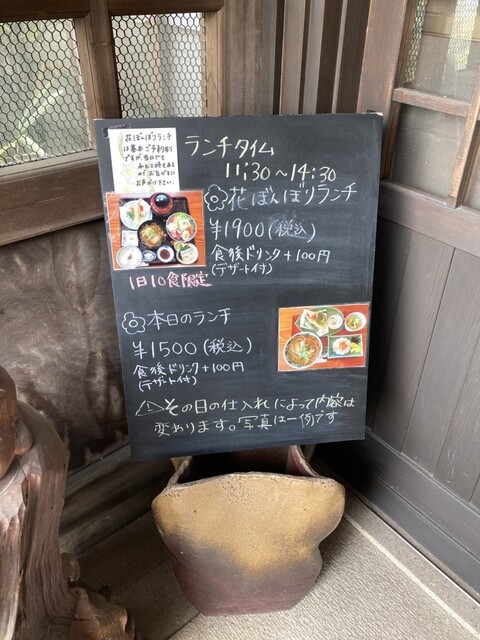 花ぼんぼりランチ
は基本ご予約制
ですが、当日でも
お気がるに
お声がけ下さい。
ランチタイム
11:30～14:30
花ぼんぼりランチ
¥1900(税込)
食後ドリンク+100円
(デザート付)
1日10食限定
本日のランチ
¥1500(税込)
食後ドリンク+100円
(デザート付)
⚠その日の仕入れによって内容は
変わります。写真は一例です